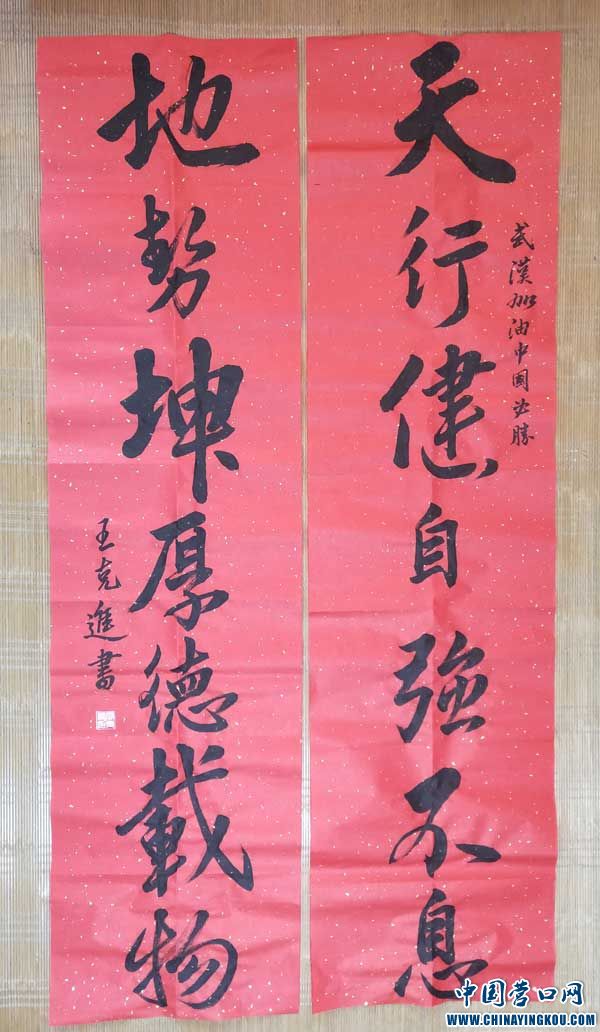 天行健自強不息
武漢加油中國必勝
地勢坤厚德載物
王克進書
中国营口网
WWW.CHINAYINGKOU.COM